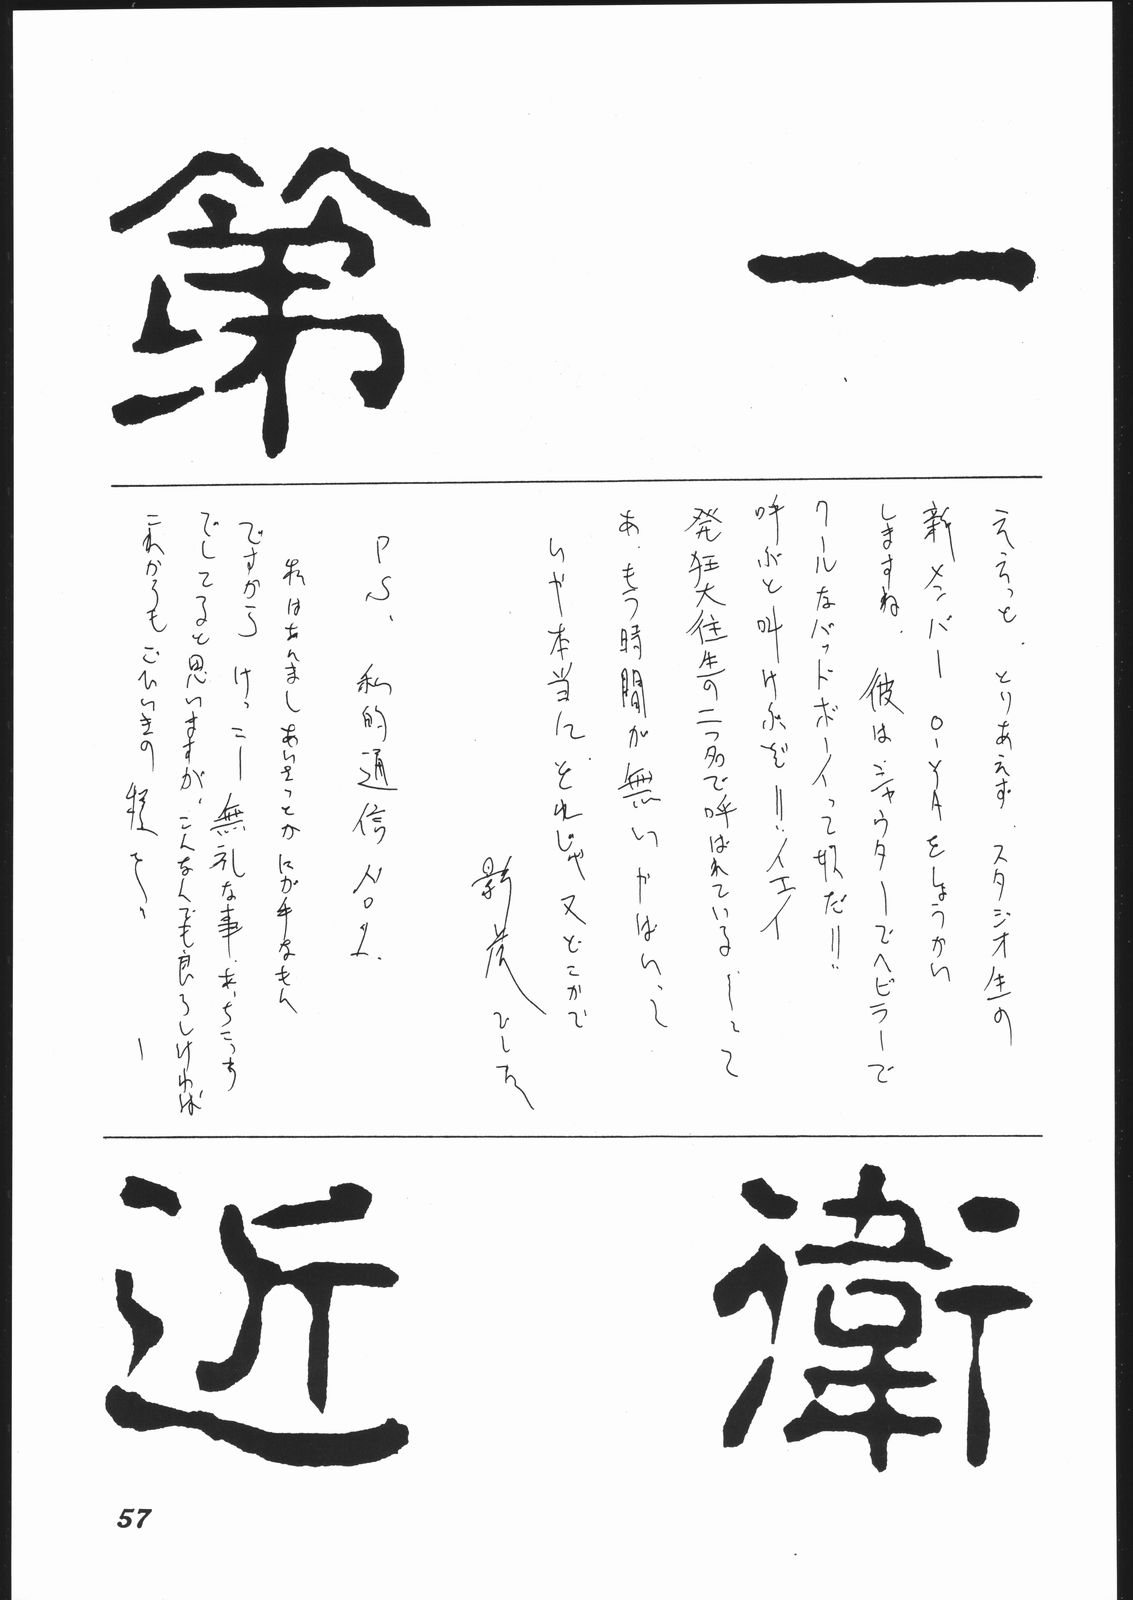 第一
ええっと、とりあえず、スタジオ生の
新メンバー O-YAをしょうかい
しますね、彼はシャウターでヘビラーで
クールなバッドボーイって奴だ!!
呼ぶと叫けぶぞ!!イエイ
発狂大往生の二つ名で呼ばれている——って
あ、もう時間が無いやばいって
いや本当に、それじゃ又どこかで
影 ひし
PS、私的通信 No1.
私はあんましあいさつとかにが手なもん
ですから けっこー無礼な事、あっちこっち
でしてると思いますが、こんなんでも良ろしければ
これからもごひいきの程を〜
近衛
57